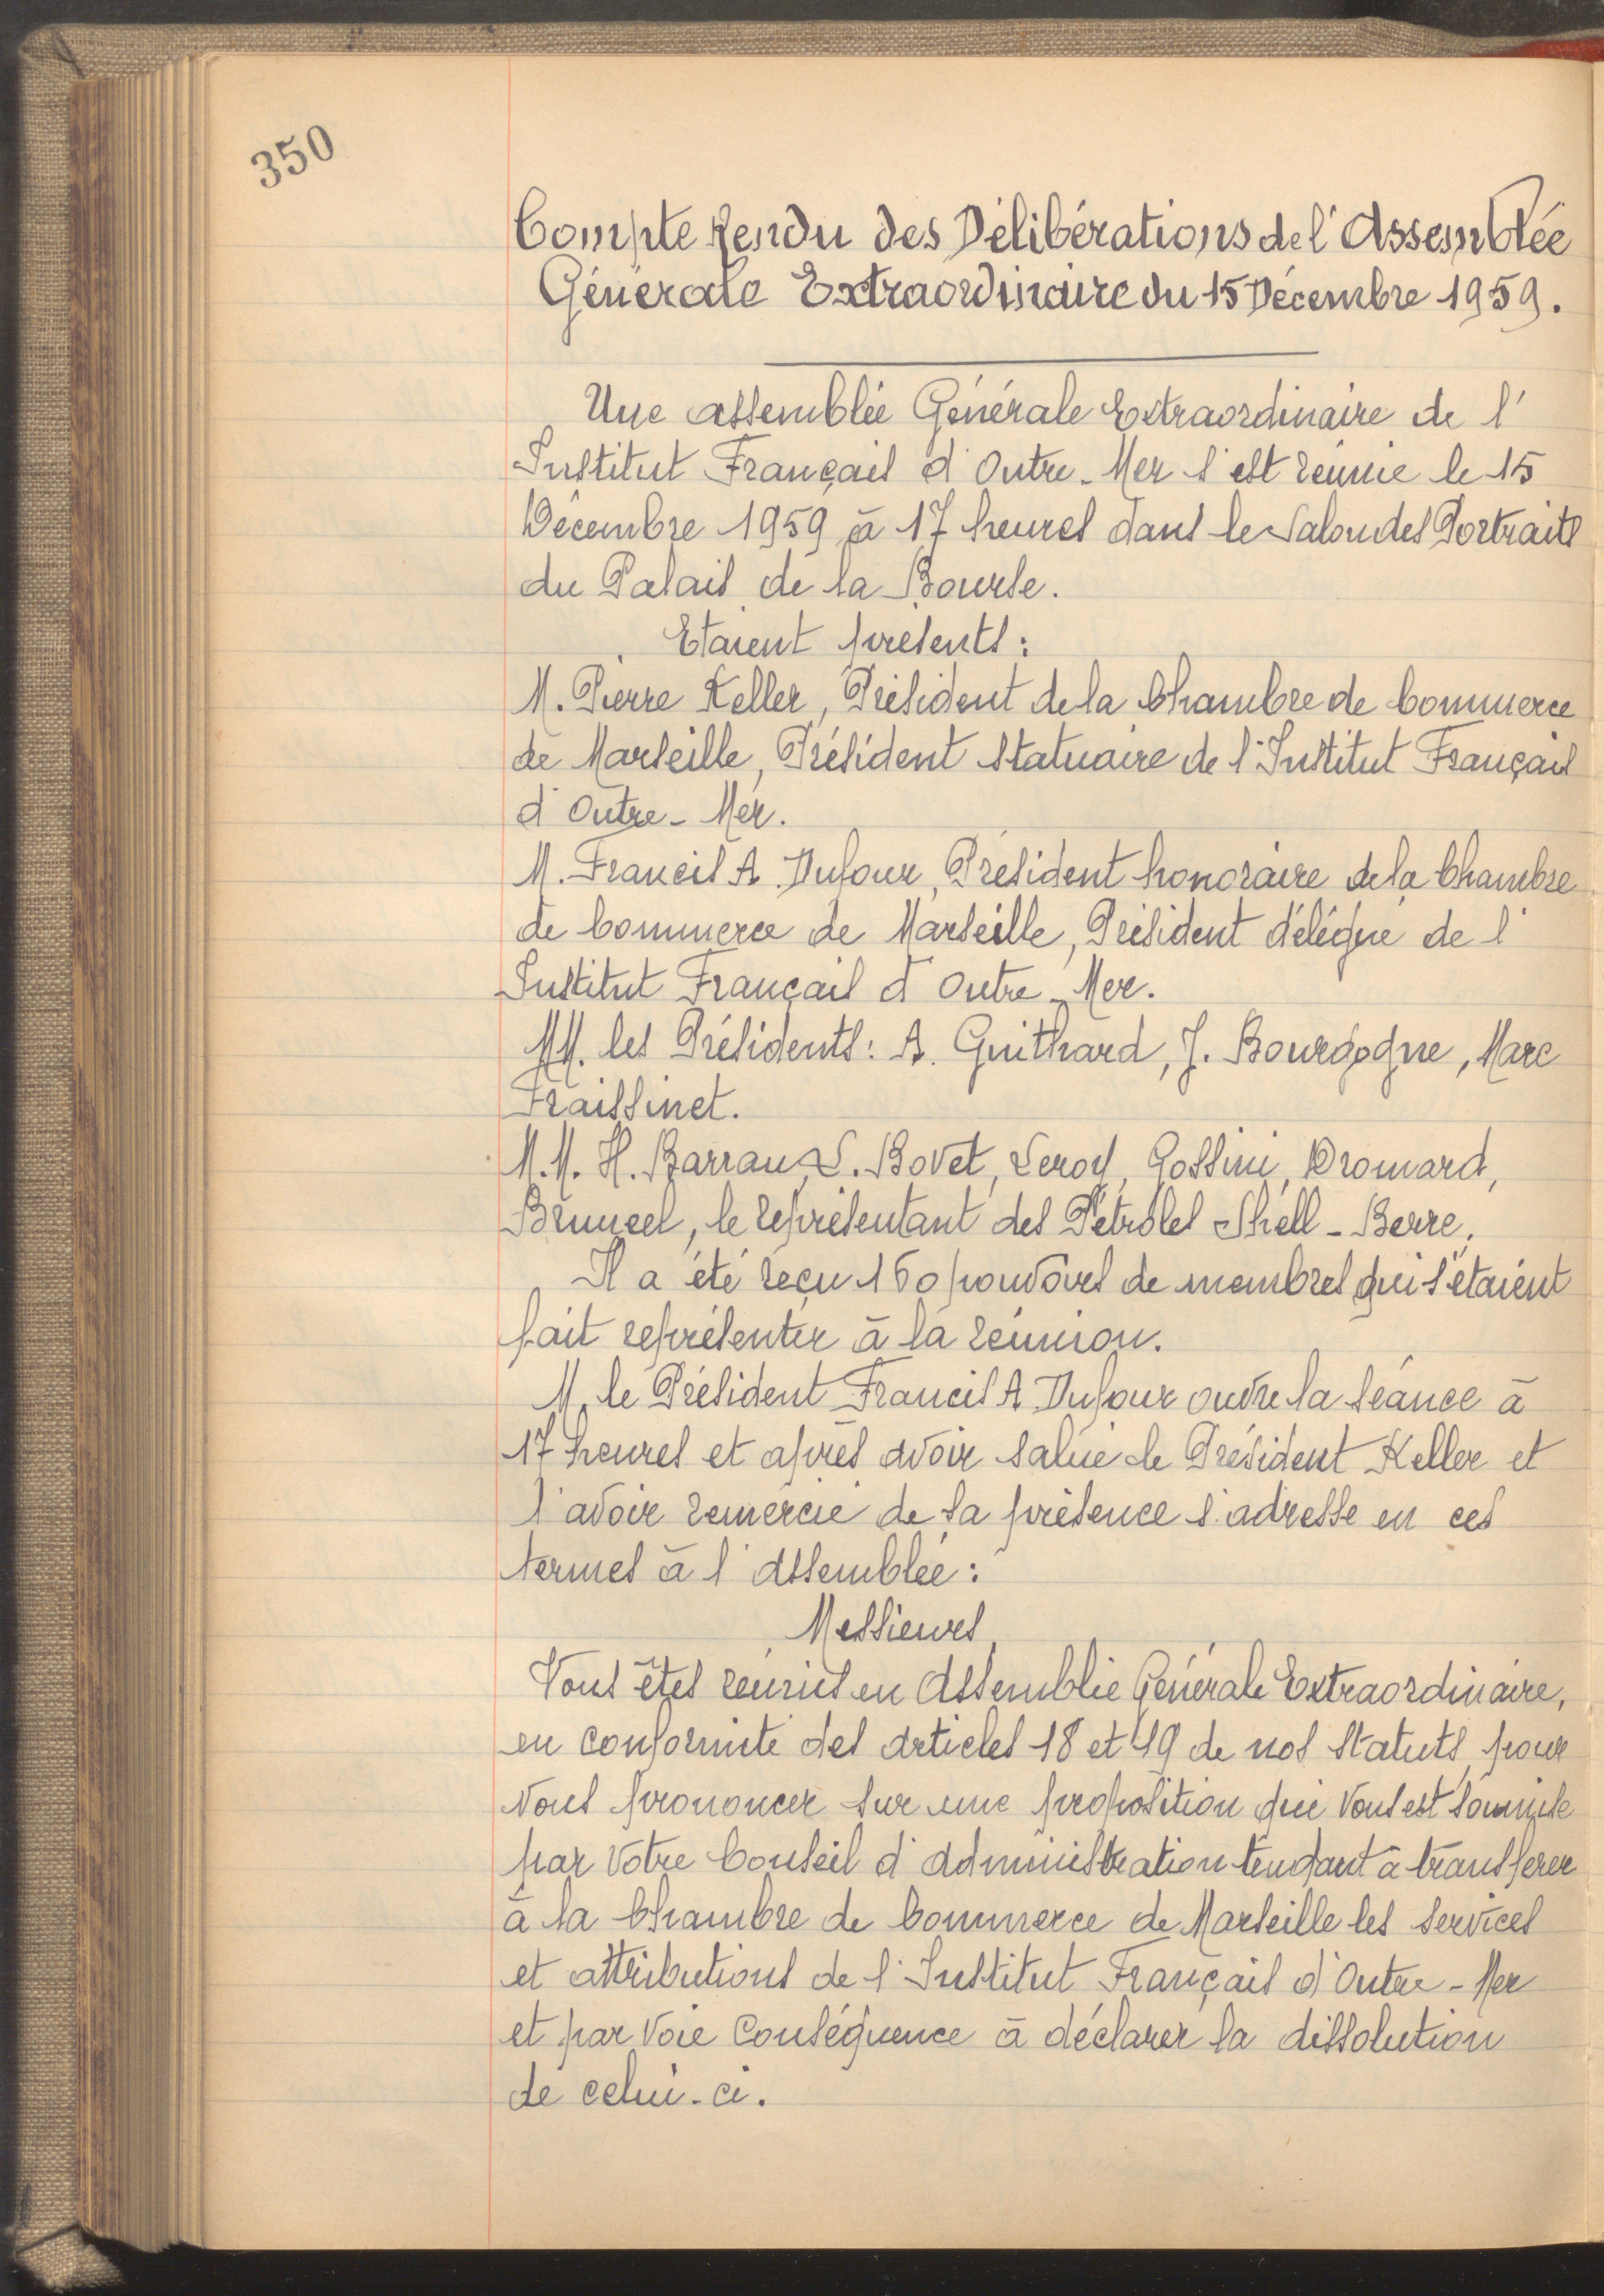 350
Compte Rendu des Délibérations de l'Assemblée
Générale Extraordinaire du 15 Décembre 1959.
Une assemblée Générale Extraordinaire de l'
Institut Français d'Outre-Mer s'est réunie le 15
Décembre 1959 à 17 heures dans le Salon des Portraits
du Palais de la Bourse.
Etaient présents :
M. Pierre Keller, Président de la Chambre de Commerce
de Marseille, Président statuaire de l'Institut Français
d'Outre-Mer.
M. Francis A. Dufour, Président honoraire de la Chambre
de Commerce de Marseille, Président délégué de l'
Institut Français d'Outre-Mer.
MM. les Présidents : A. Guithard, J. Bourgogne, Marc
Fraissinet.
M.M. H. Barrau, L. Bovet, Leroy, Gossini, Dromard,
Brunel, le représentant des Pétroles Shell-Berre.
Il a été reçu 160 pouvoirs de membres qui s'étaient
fait représenter à la réunion.
M. le Président Francis A. Dufour ouvre la séance à
17 heures et après avoir salué le Président Keller et
l'avoir remercié de sa présence s'adresse en ces
termes à l'assemblée :
Messieurs,
Vous êtes réunis en Assemblée Générale Extraordinaire,
en conformité des articles 18 et 19 de nos statuts, pour
vous prononcer sur une proposition qui vous est soumise
par votre Conseil d'administration tendant à transférer
à la Chambre de Commerce de Marseille les services
et attributions de l'Institut Français d'Outre-Mer
et par voie conséquence à déclarer la dissolution
de celui-ci.